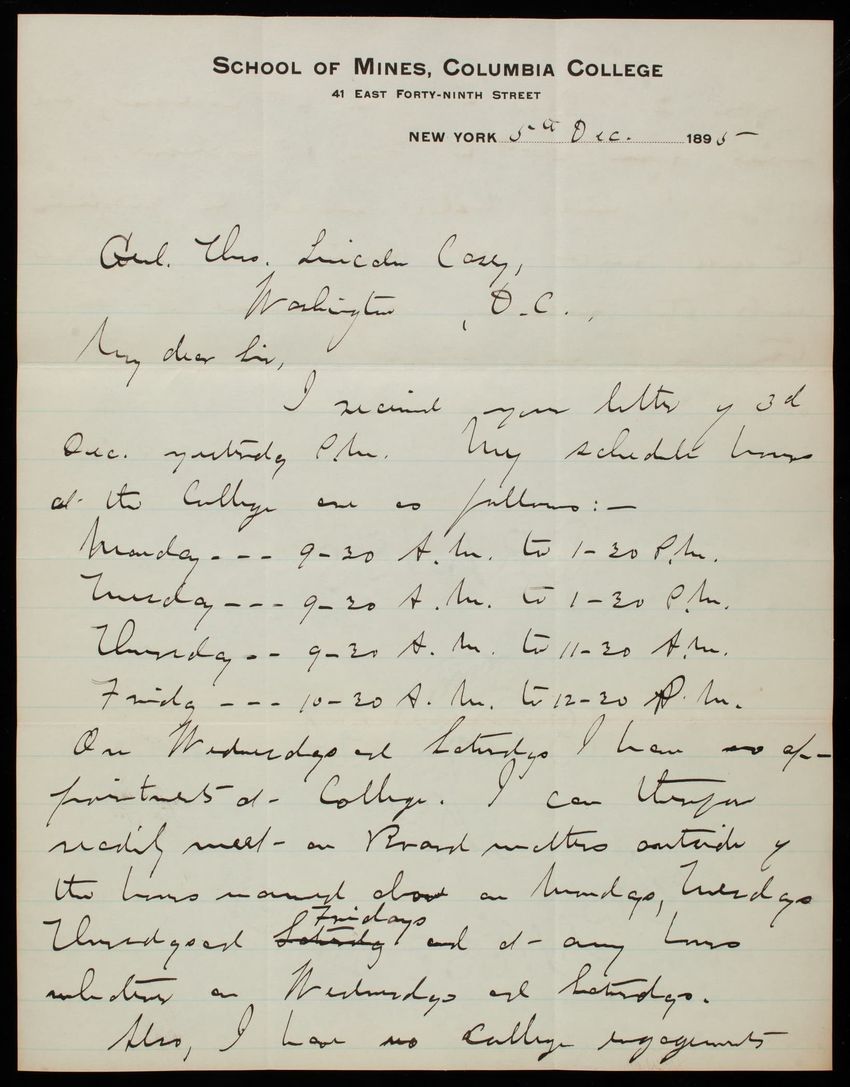 SCHOOL OF MINES, COLUMBIA COLLEGE
41 EAST FORTY-NINTH STREET
NEW YORK 5th Dec. 1895
Genl. Thos. Lincoln Casey,
Washington, D.C.,
My dear Sir,
I received your letter of 3d
Dec. yesterday P.M. My schedule hours
at the College are as follows:—
Monday - - - 9-30 A.M. to 1-30 P.M.
Tuesday - - - 9-30 A.M. to 1-30 P.M.
Thursday - - 9-30 A.M. to 11-30 A.M.
Friday - - - 10-30 A.M. to 12-30 P.M.
On Wednesdays and Saturdays I have no ap-
pointments at College. I can therefore
readily meet on Board matters outside of
the hours named above on Mondays, Tuesdays
Fridays
Thursdays and Saturday and at any hours
whatever on Wednesdays and Saturdays.
Also, I have no College engagements